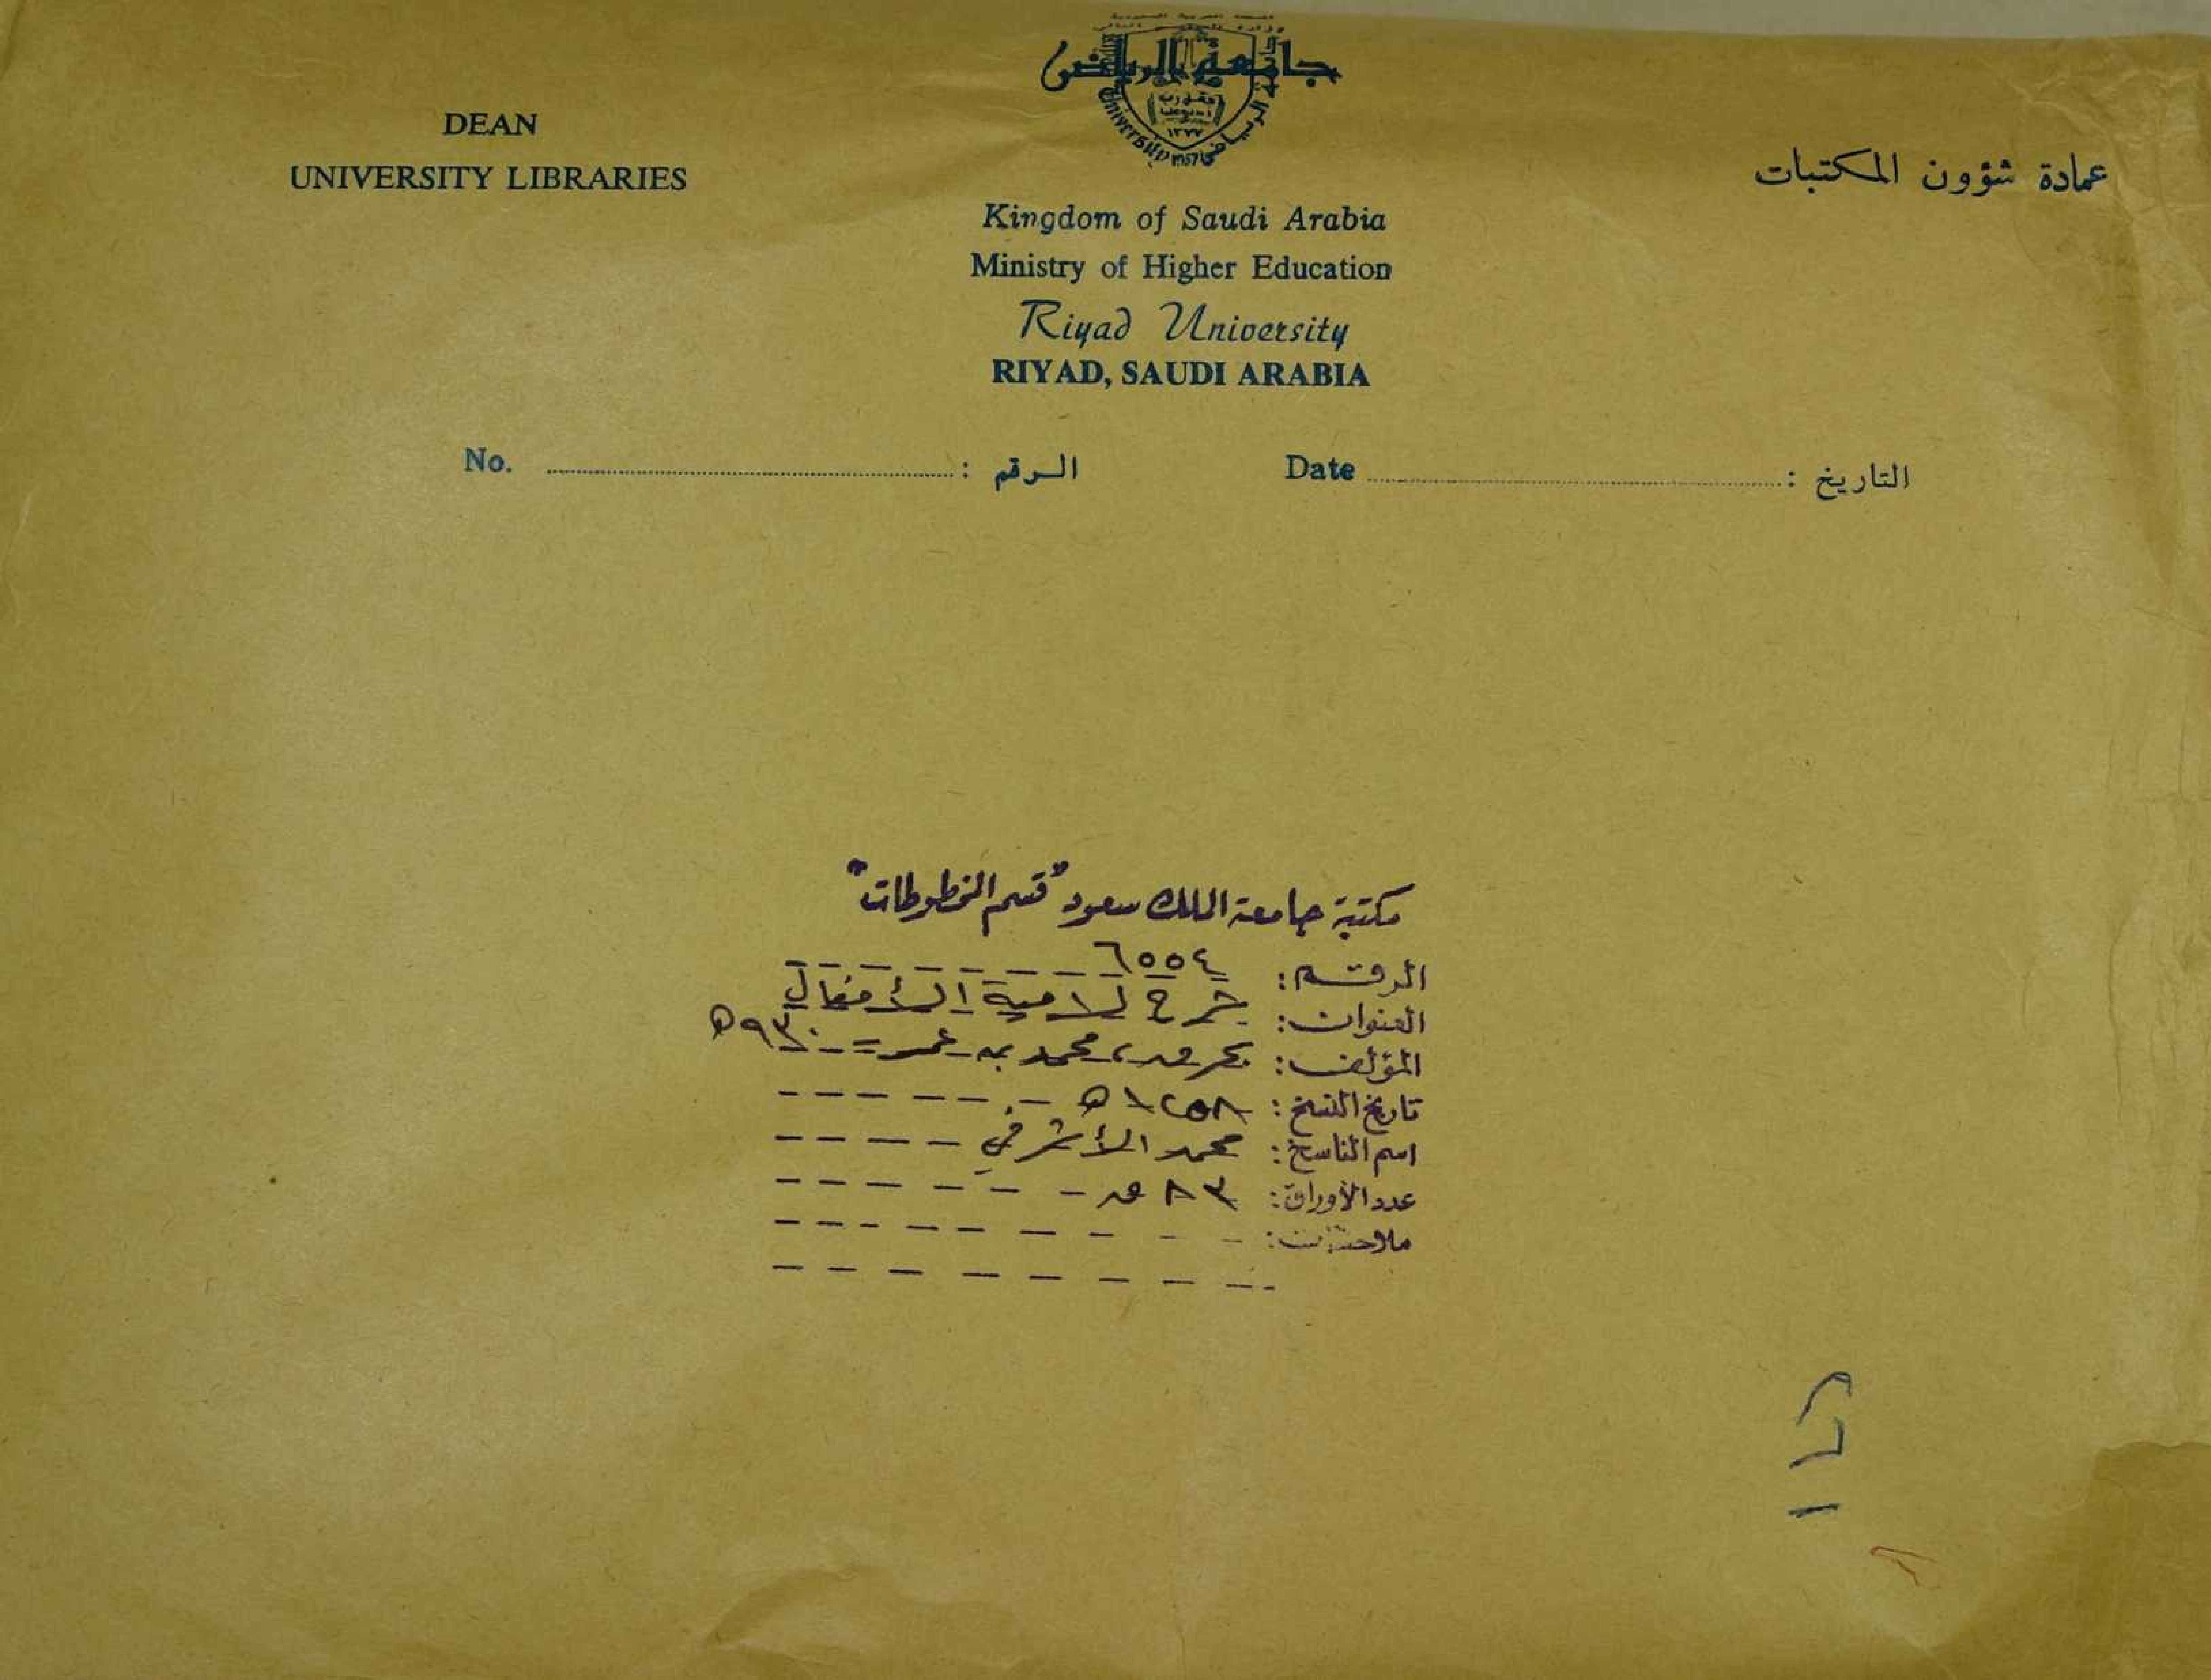 جامعة الرياض
DEAN
UNIVERSITY LIBRARIES
عمادة شؤون المكتبات
Kingdom of Saudi Arabia
Ministry of Higher Education
Riyad University
RIYAD, SAUDI ARABIA
No. : الرقم
Date : التاريخ
مكتبة جامعة الملك سعود "قسم المخطوطات"
الرقم: ٦٥٥٤
العنوان: شرح لامية الأفعال
المؤلف: بحرق، محمد بن عمر = ٩٣٠هـ
تاريخ النسخ: ١٢٥٨هـ
اسم الناسخ: محمد الأشرفي
عدد الأوراق: ٨٣ ق
ملاحظات: